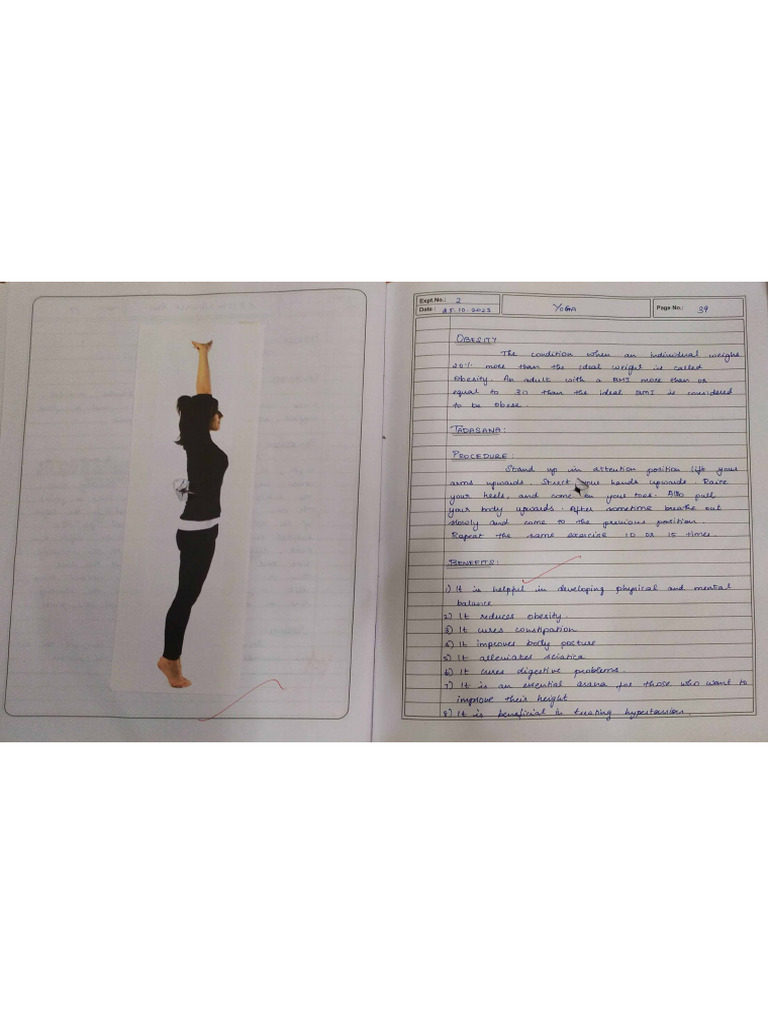 Expt.No.: 2
Date: 25.10.2023
YOGA
Page No.: 39
OBESITY
The condition when an individual weighs
20% more than the ideal weight is called
Obesity. An adult with a BMI more than or
equal to 30 than the ideal BMI is considered
to be obese.
TADASANA:
PROCEDURE:
Stand up in attention position lift your
arms upwards. your hands upwards. Raise
your heels, and come on your toes. Also pull
your body upwards. After sometime breathe out
slowly and come to the previous position.
Repeat the same exercise 10 or 15 times.
BENEFITS:
1) It is helpful in developing physical and mental
balance
2) It reduces obesity.
3) It cures constipation
4) It improves body posture
5) It alleviates sciatica
6) It cures digestive problems.
7) It is an essential asana for those who want to
improve their height
8) It is beneficial in treating hypertension.